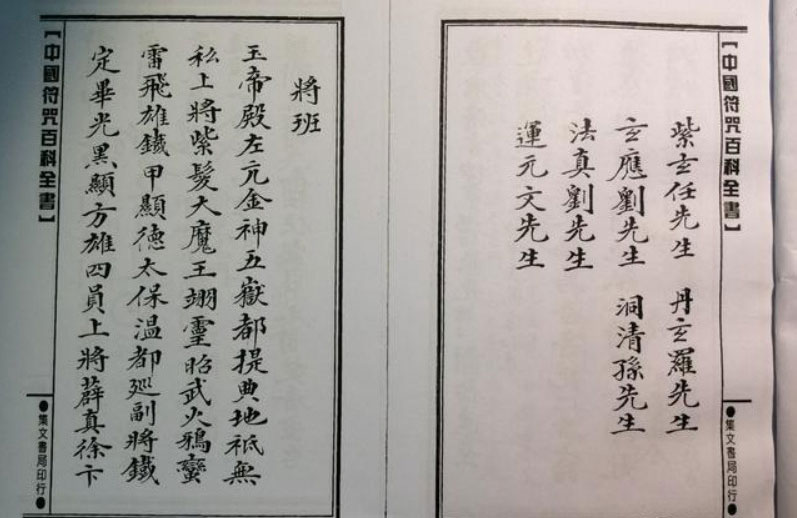 【中國符咒百科全書】
紫玄任先生　丹玄羅先生
玄應劉先生　洞清孫先生
法真劉先生
運元文先生
●集文書局印行●
將班
玉帝殿左元金神五嶽都提典地祇無
私上將紫髮大魔王翊靈昭武火鴉蠻
雷飛雄鐵甲顯德太保溫都廵副將鐵
定畢光黑顯方雄四員上將薜真徐卞
【中國符咒百科全書】
●集文書局印行●